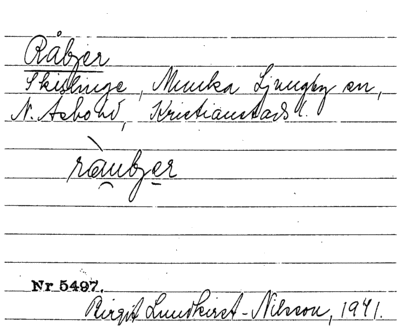 Råbjer
Skillinge, Munka Ljungby sn,
N. Åsbo hd, Kristianstads l.
ràubjer
Nr 5497.
Birgit Lundkvist-Nilsson, 1941.